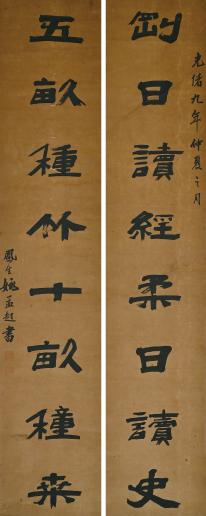 光緒九年仲夏之月
剛日讀經柔日讀史
五畝種竹十畝種桒
鳳生姚孟起書